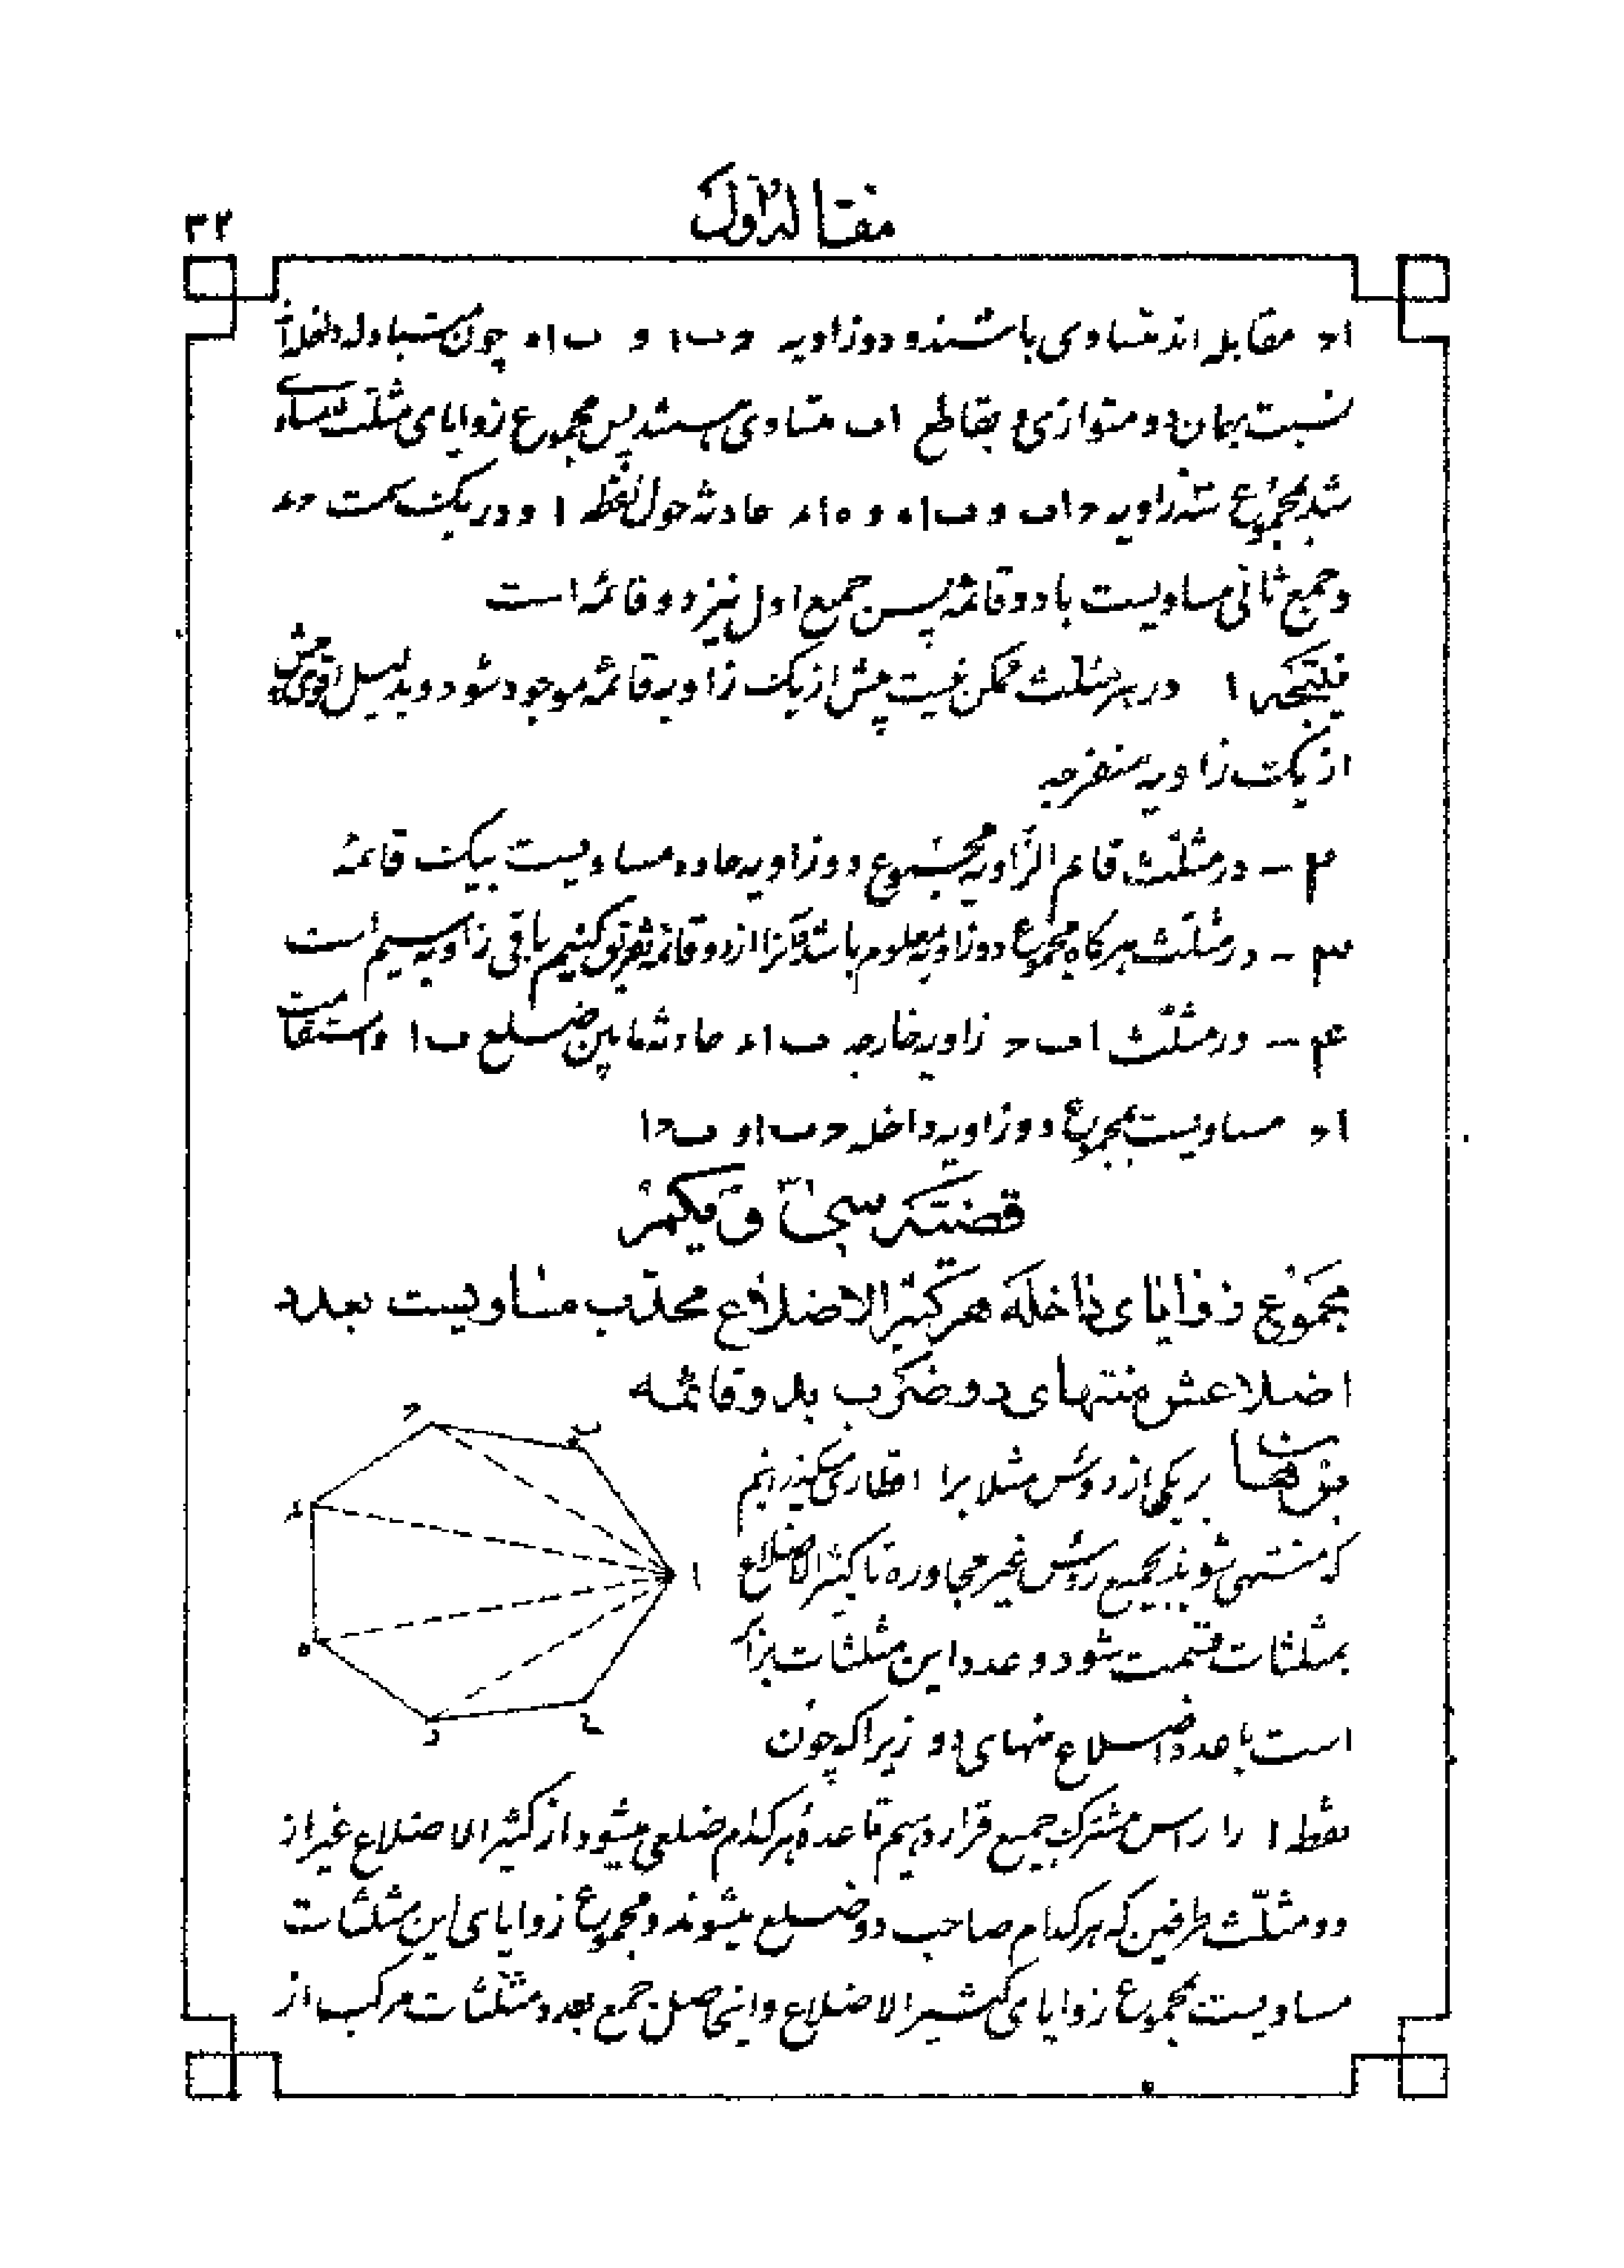 مقاله اول
۳۲
اح مقابله اند متساوی باشند و دو زاویه حب ا و ب اه چون متبادله داخله اند
نسبت بهمان دو متوازی و بقاطع اب متساوی هستند پس مجموع زوایای مثلث مساوی
شد بمجموع سه زاویه حاب و باه و هاء حادثه حول نقطه ا و در یک سمت حء
و جمع ثانی مساویست با دو قائمه پس جمع اول نیز دو قائمه است
نتیجه ۱ در هر مثلث ممکن نیست بیش از یک زاویه قائمه موجود شود و بدلیل اقوی بیش
از یک زاویه منفرجه
۲ – در مثلث قائم الزاویه مجموع دو زاویه حاده مساویست بیک قائمه
۳ – در مثلث هرگاه مجموع دو زاویه معلوم باشد و آنرا از دو قائمه تفریق کنیم باقی زاویه سیم است
۴ – در مثلث اب ح زاویه خارجه ب اء حادثه مابین ضلع ب ا و استقامت
اح مساویست بمجموع دو زاویه داخله حب ا و ب حا
قضیه سی و یکم
مجموع زوایای داخله هر کثیر الاضلاع محدّب مساویست بعدد
اضلاعش منتهای دو ضرب بدو قائمه
برهان بر یکی از رؤس مثلا برا اقطاری میگذرانیم
که منتهی شوند بجمیع رؤس غیر مجاوره تا کثیر الاضلاع
بمثلثات قسمت شود و عدد این مثلثات برابر
است با عدد اضلاع منهای دو زیرا که چون
نقطه ا را راس مشترک جمیع قرار دهیم قاعدهٔ هر کدام ضلعی میشود از کثیر الاضلاع غیر از
دو مثلث طرفین که هر کدام صاحب دو ضلع میشوند و مجموع زوایای این مثلثات
مساویست بمجموع زوایای کثیر الاضلاع و اینحاصل جمع بعدد مثلثات مرکب از
ح
ب
ء
ا
ه
و
ع